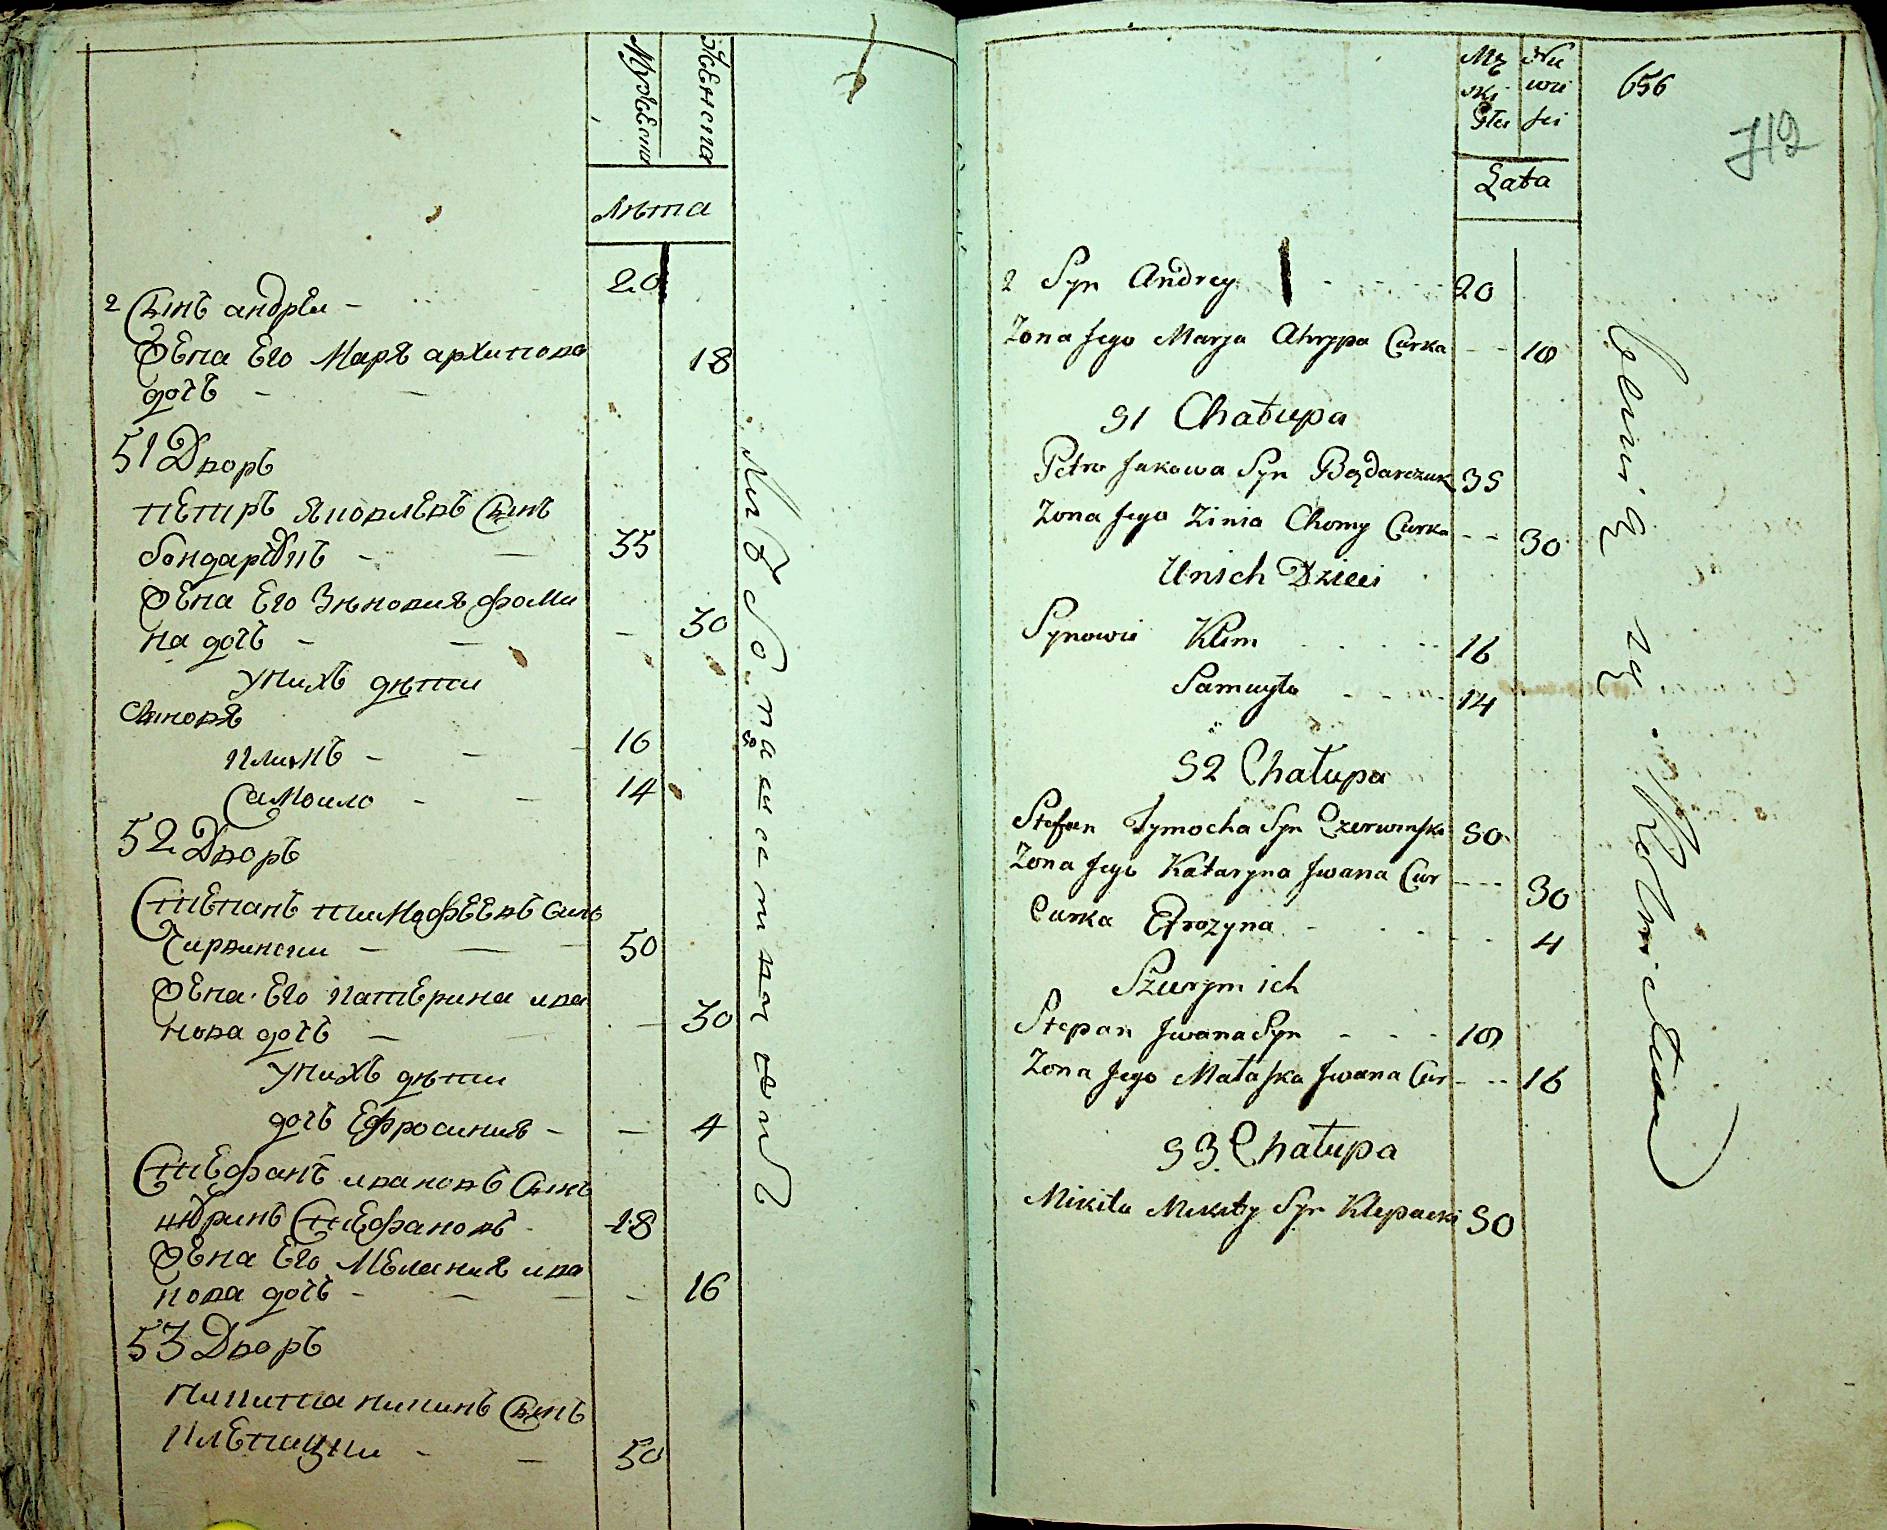 Мужеска
Женска
Лѣта
2 Сынъ андрѣи - 20
Жена Его Маря архипова 18
дочь -
51 Дворъ
пЕтръ яковлевъ Сынъ
бондарчукъ - 35
Жена Его Зѣновия фоми
на дочь - - 30
Унихъ дѣти
Сыновя
Климъ - - 16
Самоило - - 14
52 Дворъ
СтЕпанъ тимофЕЕвъ сынъ
Чирвински - 50
Жена Его катЕрина ива
нова дочь - - 30
Унихъ дѣти
дочь Ефросиния - - 4
СтЕфанъ ивановъ Сынъ
СтЕфановъ 18
Жена Его МЕлания ива
нова дочь - - 16
53 Дворъ
Никита никинъ Сынъ
КлЕпацки - - 50
Mę Nie
ski wie
Płci ści
Lata
656
712
2 Syn Andrey 20
Żona Jego Marja Ahryppa Curka 18
51 Chałupa
Petro Jakowa Syn Bądarczuk 35
Żona Jego Zinia Chomy Curka 30
Unich Dzieci
Synowie Klim 16
Samuyło 14
52 Chałupa
Stefan Tymocha Syn Czerwinski 50
Żona Jego Kataryna Jwana Cur 30
Curka Efrozyna 4
Szurym ich
Stepan Jwana Syn 18
Żona Jego Małaska Jwana Cur 16
53 Chałupa
Mikita Mikity Syn Klepacki 50